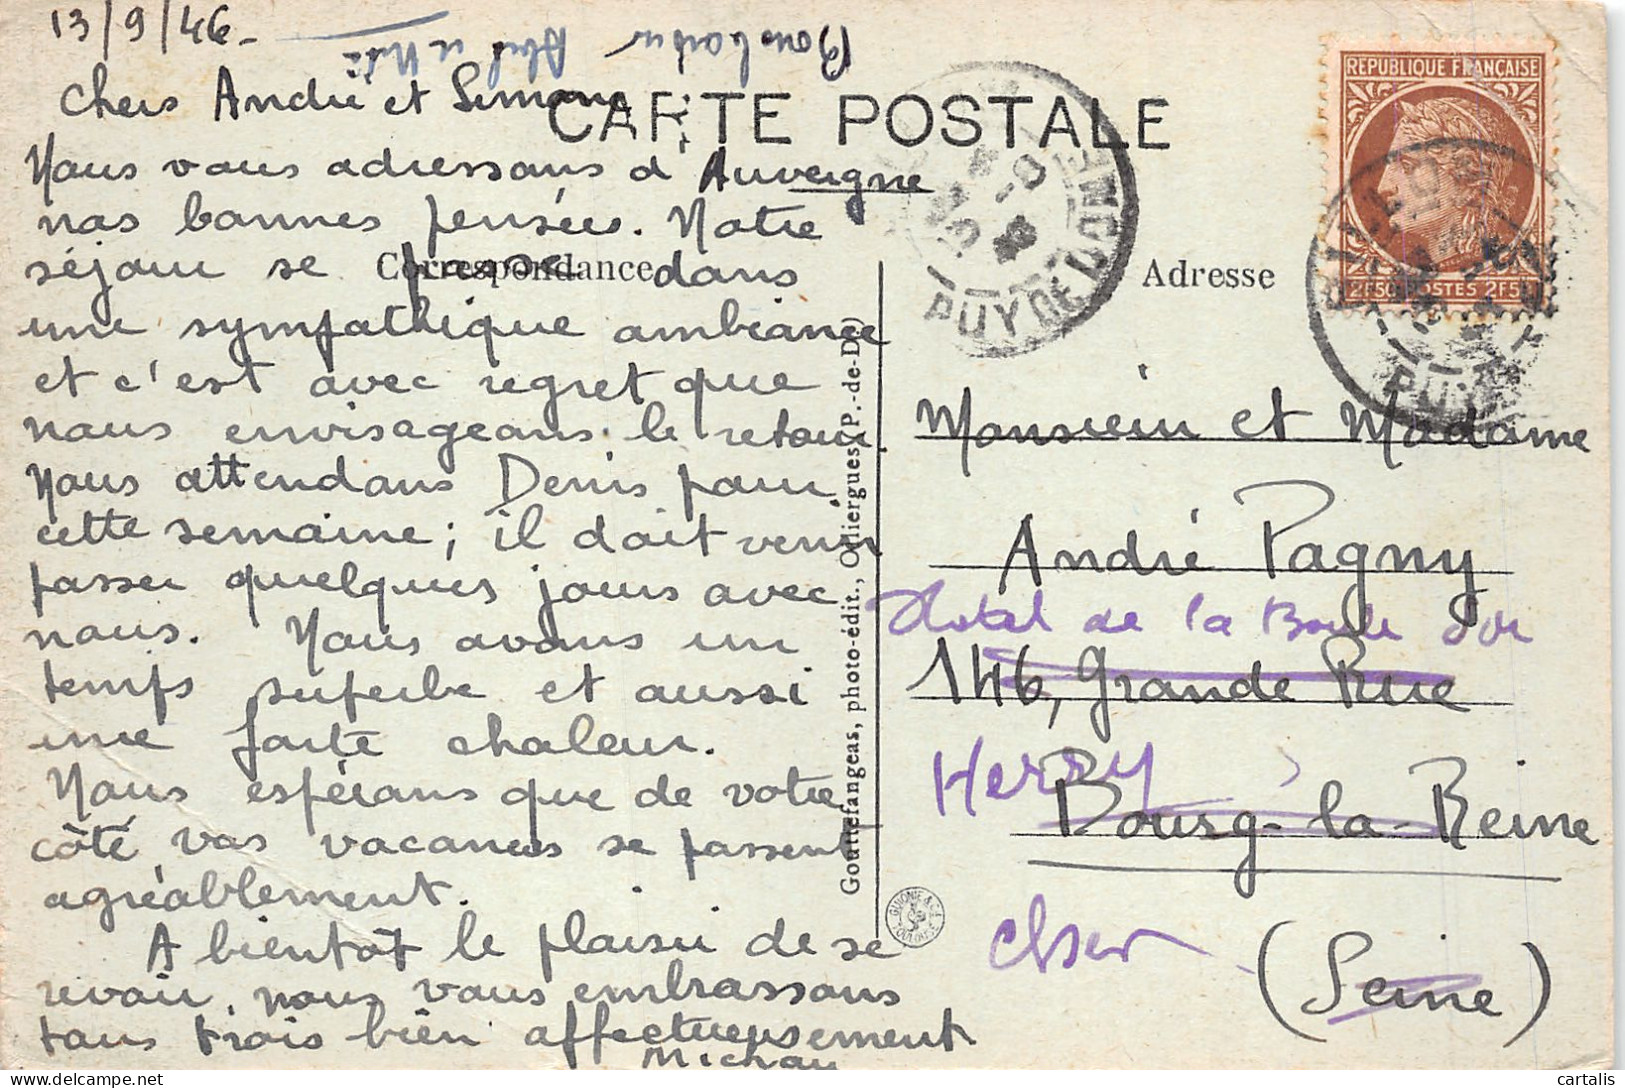 13/9/46-
Chers André et Simone
CARTE POSTALE
Nous vous adressons d'Auvergne
nos bonnes pensées. Notre
séjour se passe dans
une sympathique ambiance
et c'est avec regret que
nous envisageons le retour.
Nous attendons Denis pour
cette semaine; il doit venir
passer quelques jours avec
nous. Nous avons un
temps superbe et aussi
une forte chaleur.
Nous espérons que de votre
côté vos vacances se passent
agréablement.
A bientôt le plaisir de se
revoir, nous vous embrassons
tous trois bien affectueusement
Correspondance
Adresse
REPUBLIQUE FRANÇAISE
2F50 POSTES 2F50
PUY DE DOME
Gouttefangeas, photo-édit., Olliergues (P.-de-D.)
GUIONIE & C TOULOUSE
Monsieur et Madame
André Pagny
Hotel de la Boule d'or
146, Grande Rue
Herry
Bourg-la-Reine
Cher
(Seine)
cartalis
delcampe.net